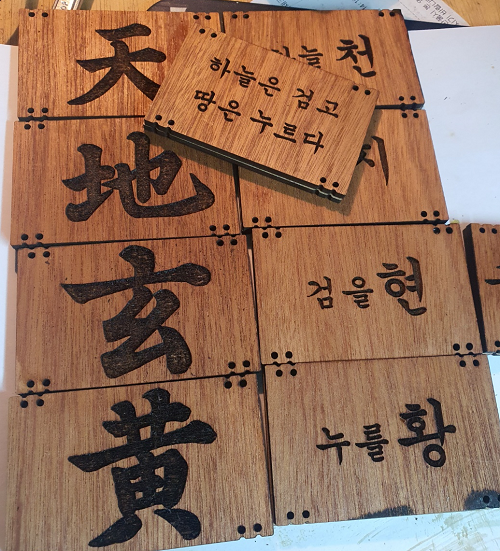 天
하늘 천
하늘은 검고
땅은 누르다
地
지
玄
검을 현
黃
누를 황